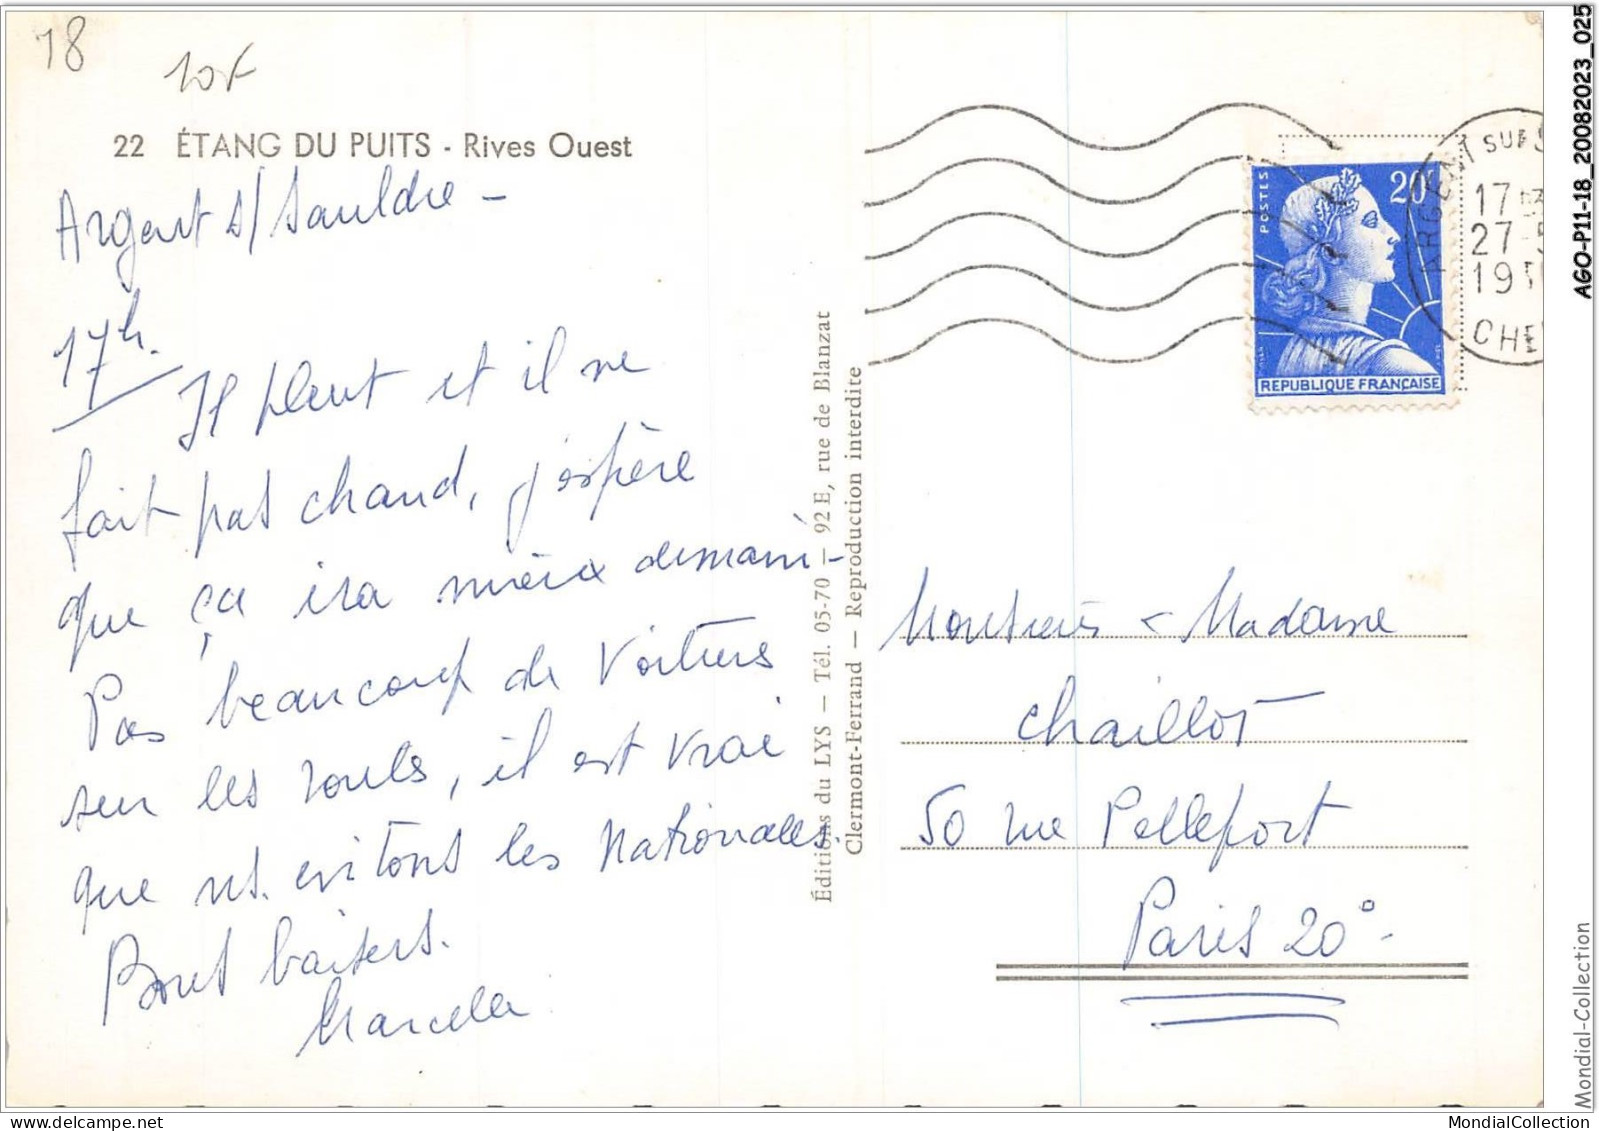 18
10F
22 ÉTANG DU PUITS - Rives Ouest
Argent s/ Sauldre -
17h.
Il pleut et il ne
fait pas chaud, j'espère
que ça ira mieux demain -
Pas beaucoup de voitures
sur les routes, il est vrai
que ns. evitons les Nationales.
Bons baisers.
Marcelle
Éditions du LYS — Tél. 05-70 — 92 E, rue de Blanzat
Clermont-Ferrand — Reproduction interdite
POSTES
20F
REPUBLIQUE FRANÇAISE
ARGENT SUR S
17 H
27-5
19
CHE
Monsieur & Madame
Chaillot
50 rue Pellefort
Paris 20°-
AGO-P11-18_20082023_025
Mondial-Collection
MondialCollection